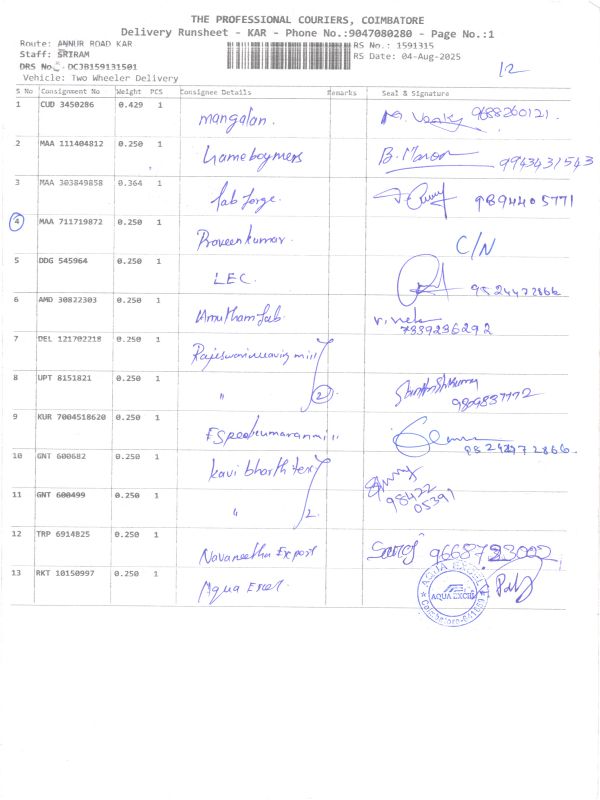 THE PROFESSIONAL COURIERS, COIMBATORE
Delivery Runsheet - KAR - Phone No.:9047080280 - Page No.:1
Route: ANNUR ROAD KAR RS No.: 1591315
Staff: SRIRAM RS Date: 04-Aug-2025
DRS No.: DCJB159131501
Vehicle: Two Wheeler Delivery
12
S No Consignment No Weight PCS Consignee Details Remarks Seal & Signature
1 CUD 3450286 0.429 1 mangalan. 9688260121.
2 MAA 111404812 0.250 1 B. 9943431543
3 MAA 303849858 0.364 1 fab forge. 9894405771
4 MAA 711719872 0.250 1 Praveen kumar. C/N
5 DDG 545964 0.250 1 LEC. 9524472866
6 AMD 30822303 0.250 1 Amutham fab. 7339236292
7 DEL 121702218 0.250 1 mill
8 UPT 8151821 0.250 1 " 2 9809837772
9 KUR 7004518620 0.250 1
10 GNT 600682 0.250 1 kavi bharth tex 98422
05391
11 GNT 600499 0.250 1 " 2.
12 TRP 6914825 0.250 1 Navaneetha Export
13 RKT 10150997 0.250 1 Aqua Excel.
AQUA EXCEL
AQUA EXCEL